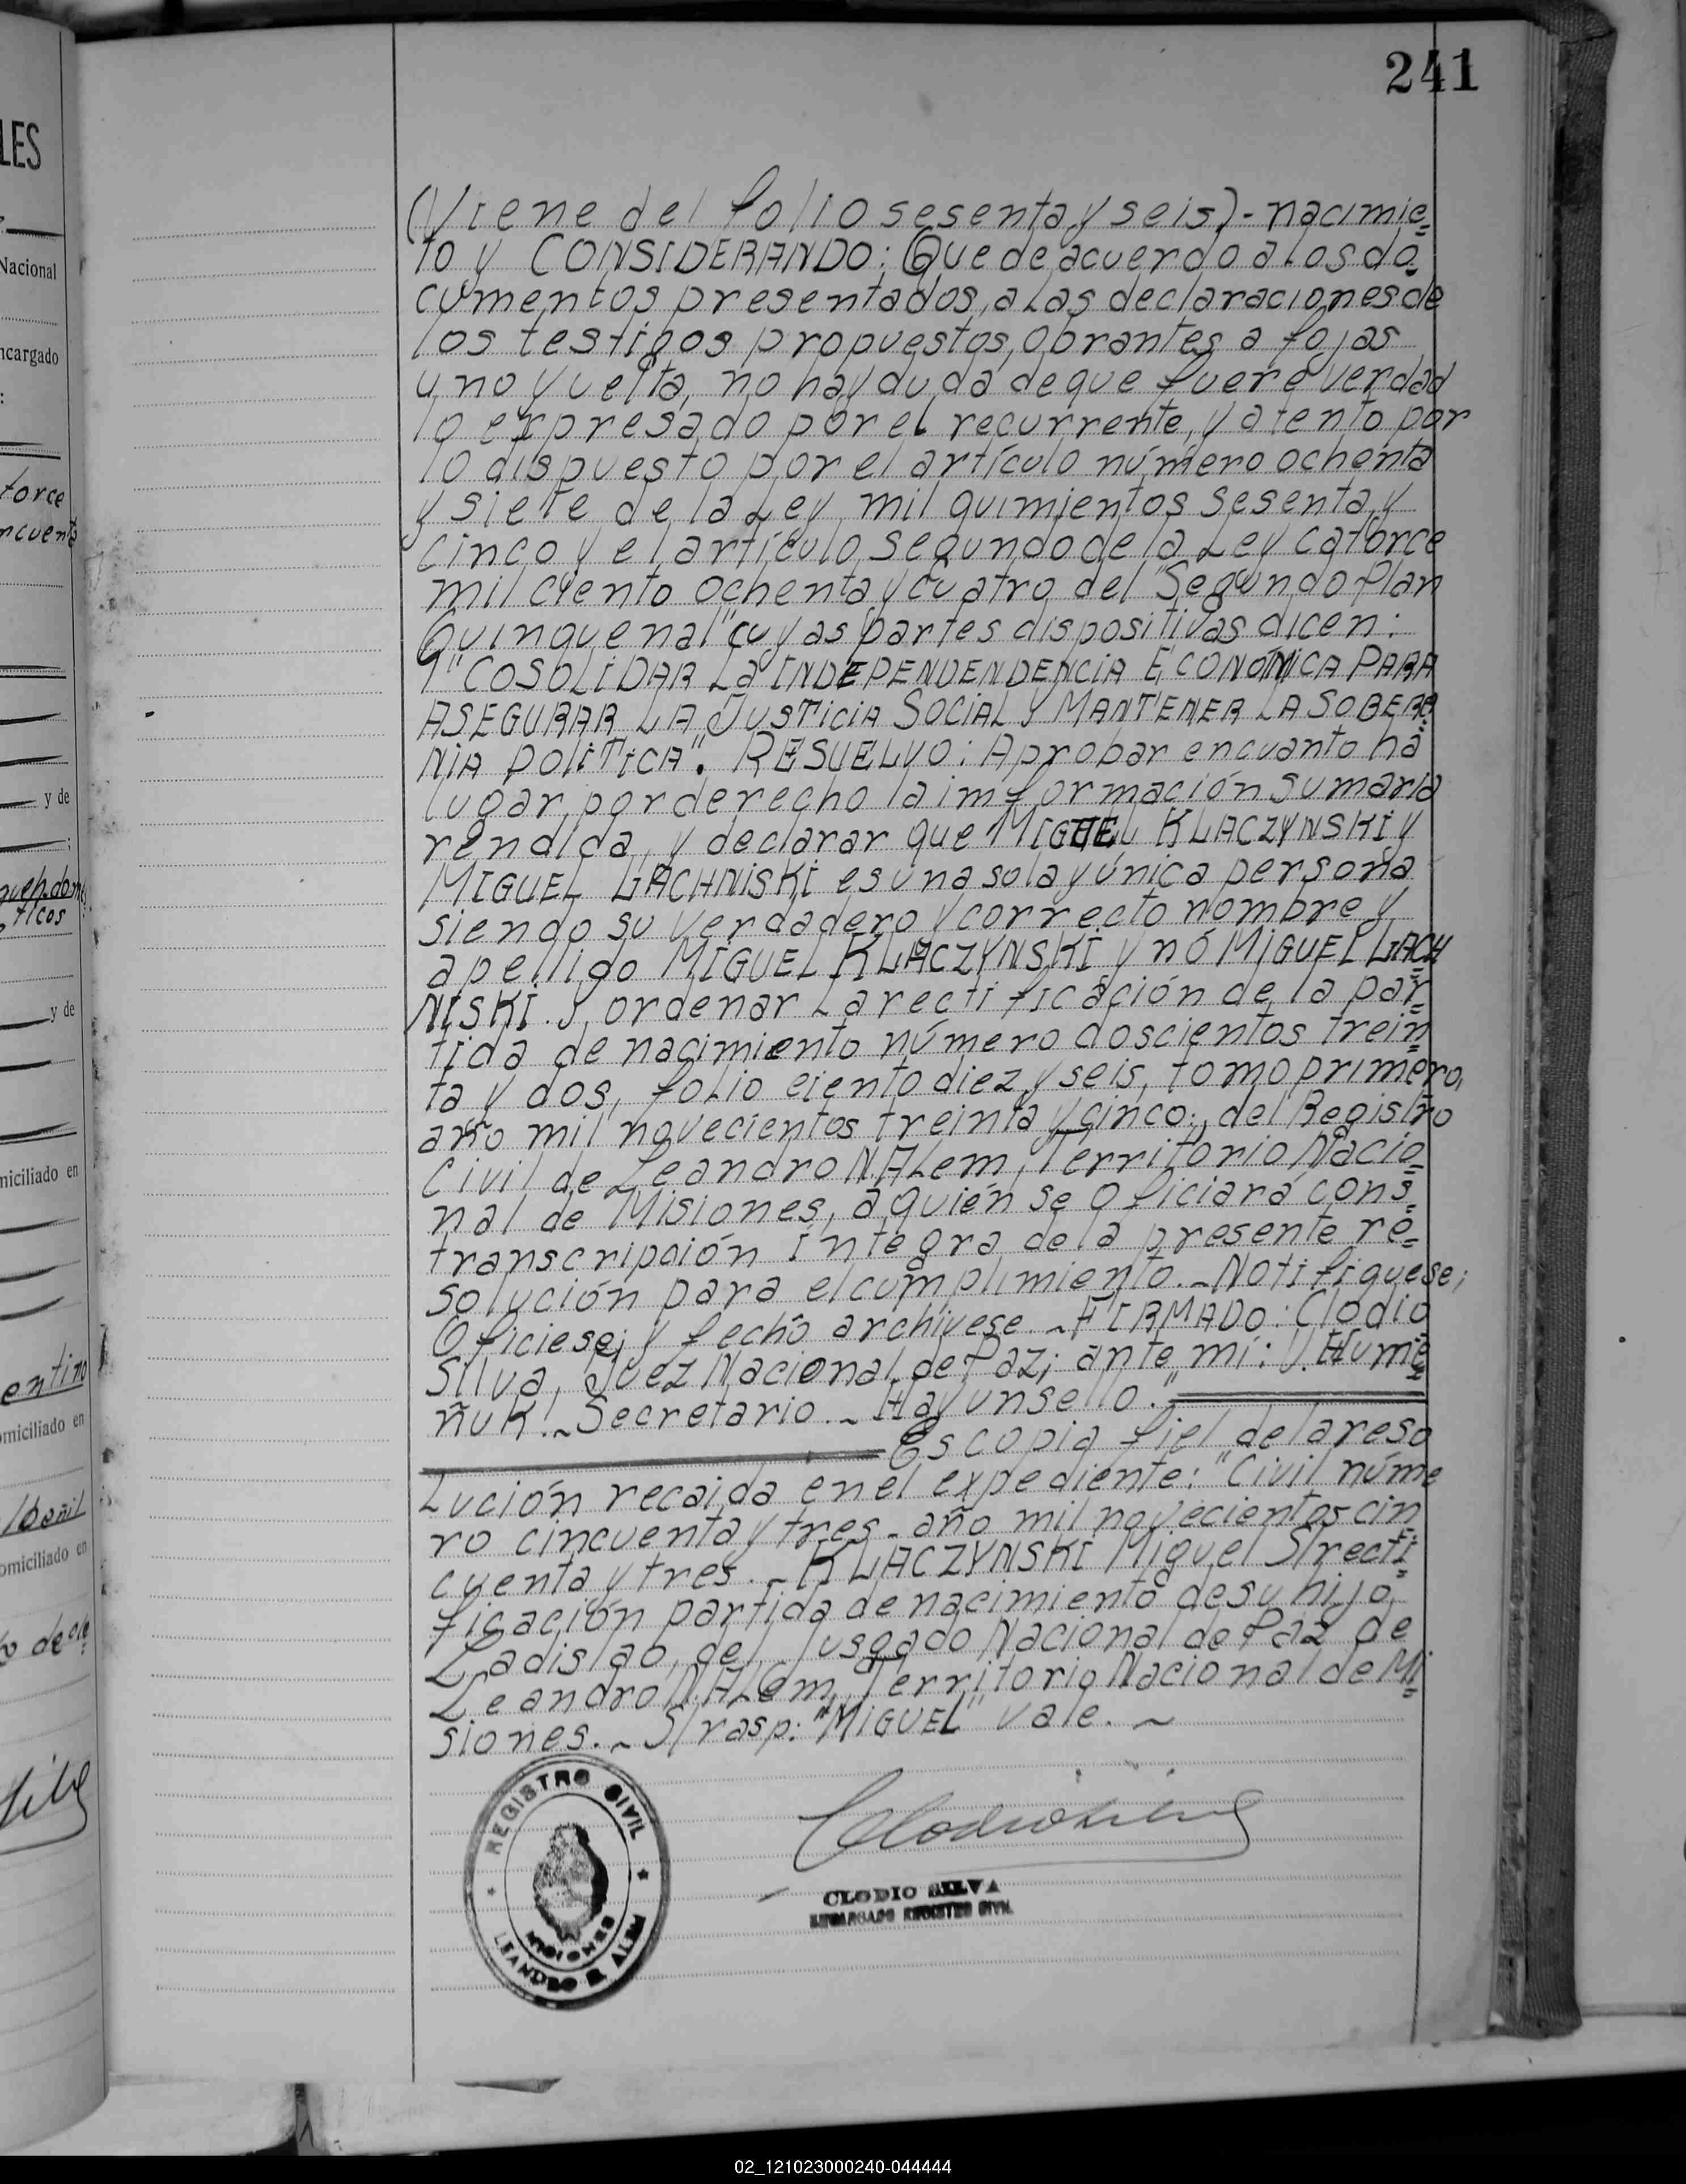 241
LES
Nacional
ncargado
:
torce
ncuent
y de
ticos
y de
miciliado en
entino
omiciliado en
lbañil
omiciliado en
(Viene del folio sesenta y seis).- nacimie=
to y CONSIDERANDO: Que de acuerdo a los do=
cumentos presentados, a las declaraciones de
los testigos propuestos, obrantes a fojas
uno y vuelta, no hay duda de que fuere verdad
lo expresado por el recurrente, y atento por
lo dispuesto por el artículo número ochenta
y siete de la Ley mil quimientos sesenta y
cinco y el artículo segundo de la Ley catorce
mil ciento ochenta y cuatro del "Segundo Plan
Quinquenal" cuyas partes dispositivas dicen:
"COSOLIDAR La INDEPENDENDENCIA ECONÓMICA PARA
ASEGURAR LA JUSTICIA SOCIAL Y MANTENER LA SOBERA=
NIA POLITICA". RESUELVO: Aprobar encuanto há
lugar por derecho la imformación sumaria
rendida, y declarar que MIGUEL KLACZYNSKI y
MIGUEL LACHNISKI es una sola y única persona
siendo su verdadero y correcto nombre y
apellido MIGUEL KLACZYNSKI y nó MIGUEL LACH=
NISKI. y, ordenar la rectificación de la par=
tida de nacimiento número doscientos trein=
ta y dos, folio ciento diez y seis, tomo primero,
año mil novecientos treinta y cinco., del Registro
Civil de Leandro N. ALem, Territorio Nacio=
nal de Misiones, a quién se oficiará cons=
transcripción íntegra de la presente re=
solución para el cumplimiento.- Notifíquese;
Ofíciese; y fecho archívese.~ FIRMADO: Clodio
Silva, Juez Nacional de Paz; ante mí: V. Hume=
ñuk!~ Secretario.~ Hay un sello."
Es copia fiel de la reso
lución recaida en el expediente: "Civil núme
ro cincuenta y tres - año mil novecientos cin
cuenta y tres.~ KLACZYNSKI Miguel S/recti=
ficación partida de nacimiento de su hijo
Ladislao, del Jusgado Nacional de Paz de
Leandro N. ALem, Territorio Nacional de Mi=
siones.~ S/rasp: "MIGUEL" vale.~
REGISTRO CIVIL
MISIONES
LEANDRO N. ALEM
Clodio Silva
CLODIO SILVA
ENCARGADO REGISTRO CIVIL
02_121023000240-044444